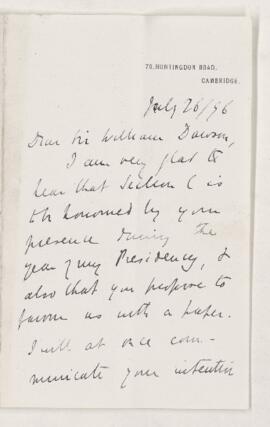 70, HUNTINGDON ROAD,
CAMBRIDGE.
July 26/96
Dear Sir William Dawson,
I am very glad to
hear that Section C is
to be honoured by your
presence during the
year of my Presidency, &
also that you propose to
favour us with a paper.
I will at once com-
municate your intention